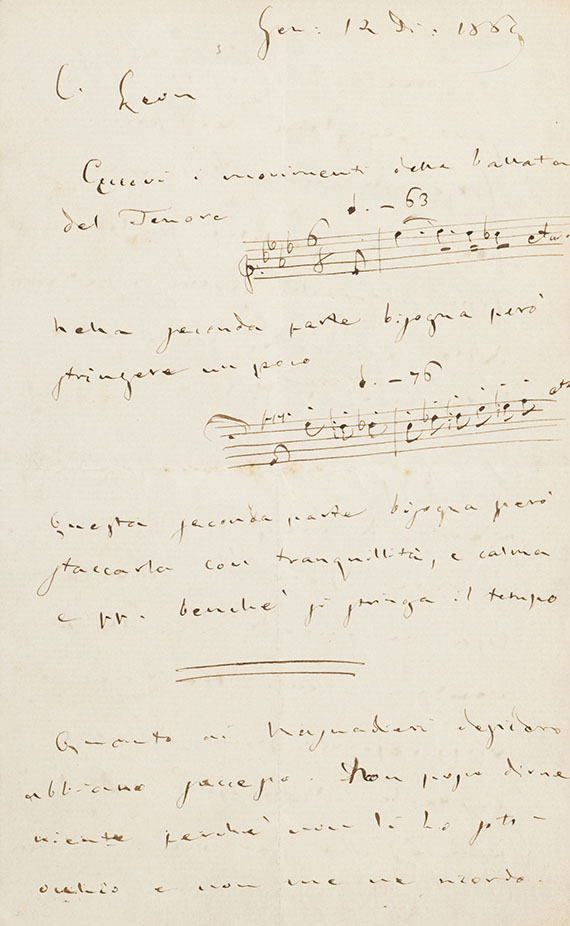 Gen: 12 Di: 1883
C. Leon
Eccovi i movimenti della ballata
del Tenore
♩. – 63
6
8
etc.
Nella seconda parte bisogna però
stringere un poco
♩. – 76
etc
Questa seconda parte bisogna però
staccarla con tranquillità, e calma
e pp. benché si stringa il tempo
Quanto ai desidero
abbiano successo. Non posso dirne
niente perché non li ho sott'
occhio e non me ne ricordo.